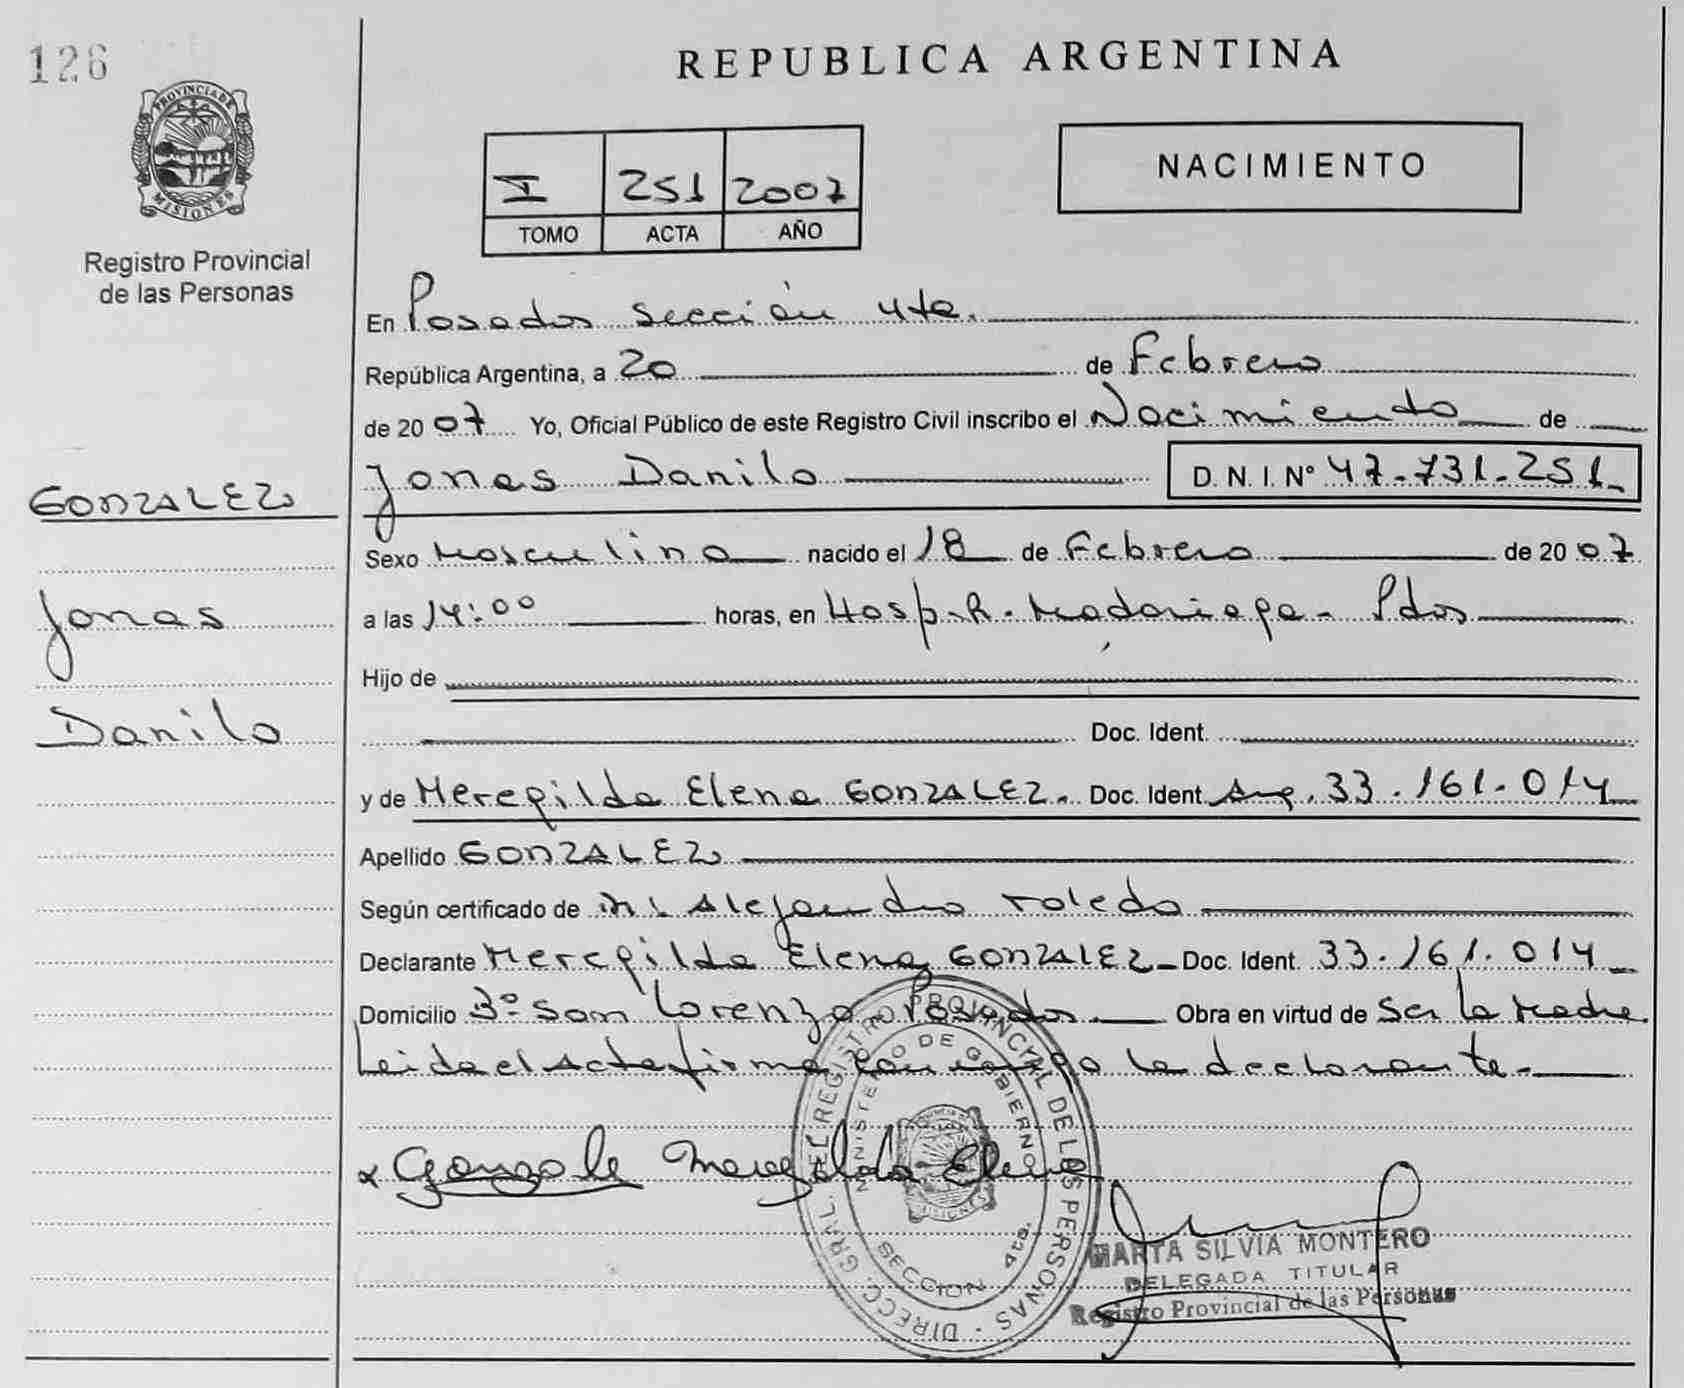 126
PROVINCIA DE
MISIONES
Registro Provincial
de las Personas
GONZALEZ
Jonas
Danilo
REPUBLICA ARGENTINA
I 251 2007
TOMO ACTA AÑO
NACIMIENTO
En Posadas sección 4ta.
República Argentina, a 20 de Febrero
de 2007 Yo, Oficial Público de este Registro Civil inscribo el Nacimiento de
Jonas Danilo D. N. I. Nº 47.731.251
Sexo Masculino nacido el 18 de Febrero de 2007
a las 14:00 horas, en Hosp. R. Madariaga - Pdas
Hijo de
Doc. Ident.
y de Meregilda Elena GONZALEZ. Doc. Ident. Arg. 33.161.014
Apellido GONZALEZ
Según certificado de Alejandro Toledo
Declarante Meregilda Elena GONZALEZ Doc. Ident. 33.161.014
Domicilio Bº San Lorenzo Posadas. Obra en virtud de Ser la Madre.
Leida el Acta firma conmigo la declarante.
x Gonzale Meregilda Elena
DIRECC. GRAL. DEL REGISTRO PROVINCIAL DE LAS PERSONAS
MINISTERIO DE GOBIERNO
SECCION 4ta.
MARTA SILVIA MONTERO
DELEGADA TITULAR
Registro Provincial de las Personas